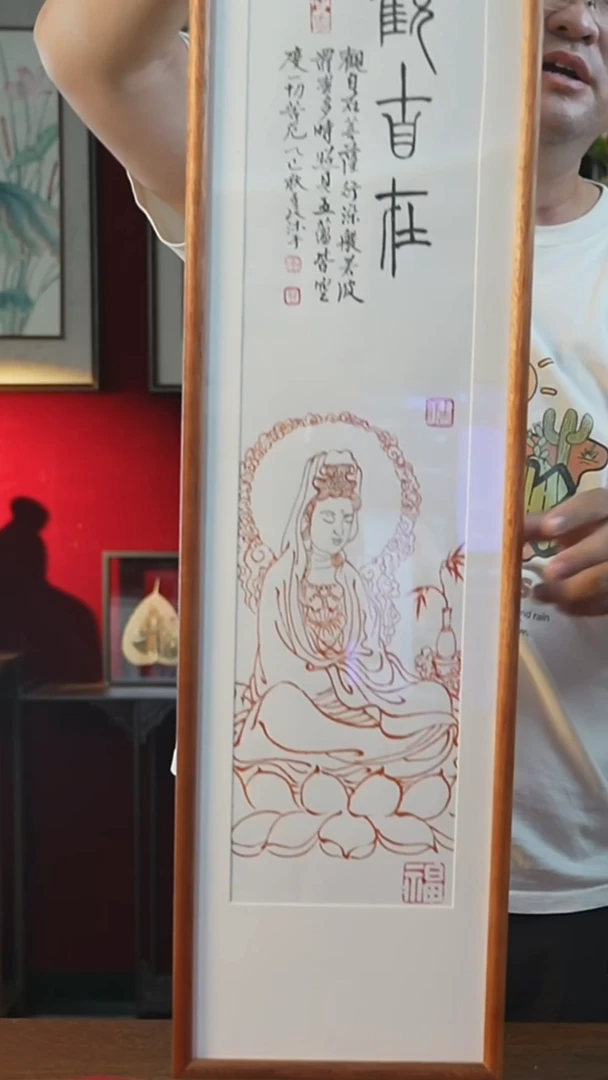 觀自在
觀自在菩薩行深般若波
羅蜜多時照見五蘊皆空
度一切苦厄乙巳秋沐手
福
rain